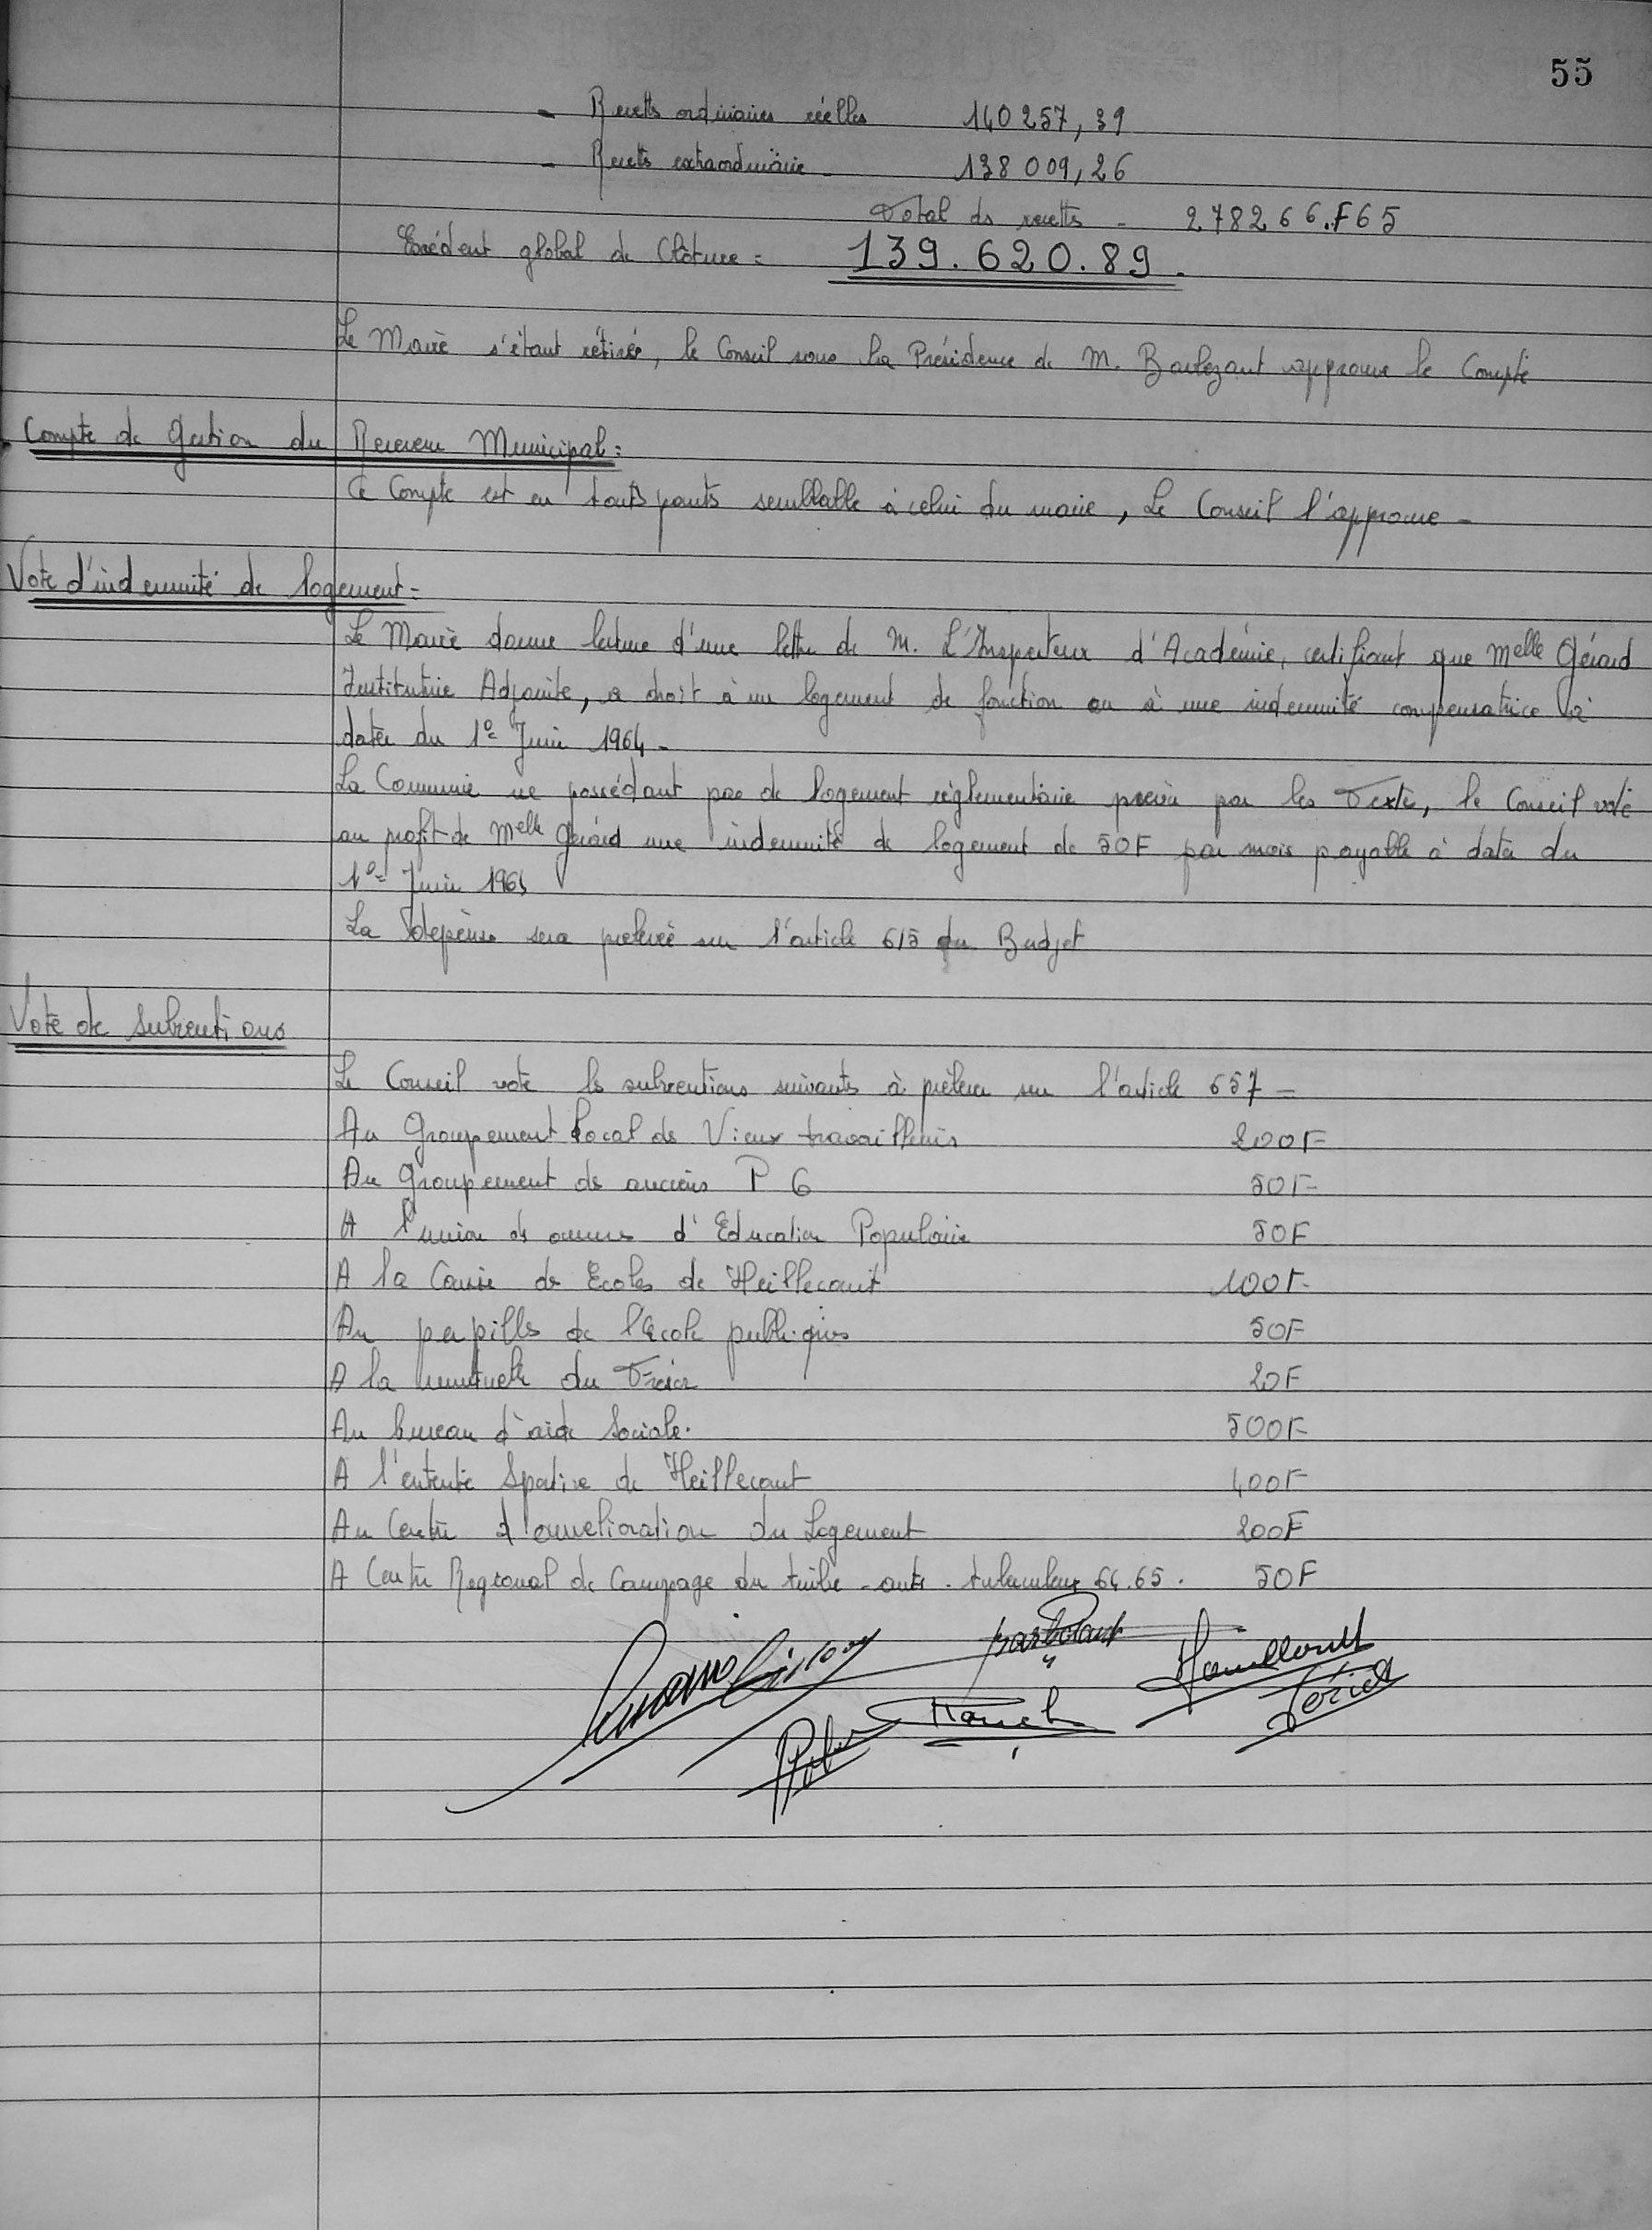 55
- Recetts ordinaires réelles 140 257,39
- Recetts extraordinaire - 138 009,26
Total ds recetts - 278266.F65
Excédent global de Clôture = 139.620.89.
Le Maire s'étant rétiré, le Conseil sous la Présidence de M. approuve le Compte
Compte de Gestion du Receveur Municipal:
Ce Compte est en touts points semblable à celui du maire, Le Conseil l'approuve -
Vote d'indemnité de logement =
Le Maire donne lecture d'une lettre de M. L'Inspecteur d'Académie, certifiant que Melle Gérard
Institutrice Adjointe, a droit à un logement de fonction ou à une indemnité compensatrice à
dater du 1er Juin 1964 -
La Commune ne possédant pas de logement règlementaire prévu par les Texte, le Conseil vote
au profit de Melle Gérard une indemnité de logement de 50F par mois payable à dater du
1er Juin 1964
La dépense sera prélevée sur l'article 615 du Budget
Vote de Subventions
Le Conseil vote ls subventions suivants à prélever sur l'article 657 =
Au Groupement Local de Vieux travailleurs 200F
Au Groupement ds anciens P G 50F
A l'union ds œuvres d'Education Populaire 50F
A la Caisse ds Ecoles de Heillecourt 100F
Au pupills de l'école publiques 50F
A la mutuelle du Trésor 20F
Au bureau d'aide Sociale. 500F
A l'entente Sportive de Heillecourt 400F
Au Centre d'amélioration du Logement 200F
A Centre Régional de Campagne du timbre - anti - tuberculeux 64.65. 50F